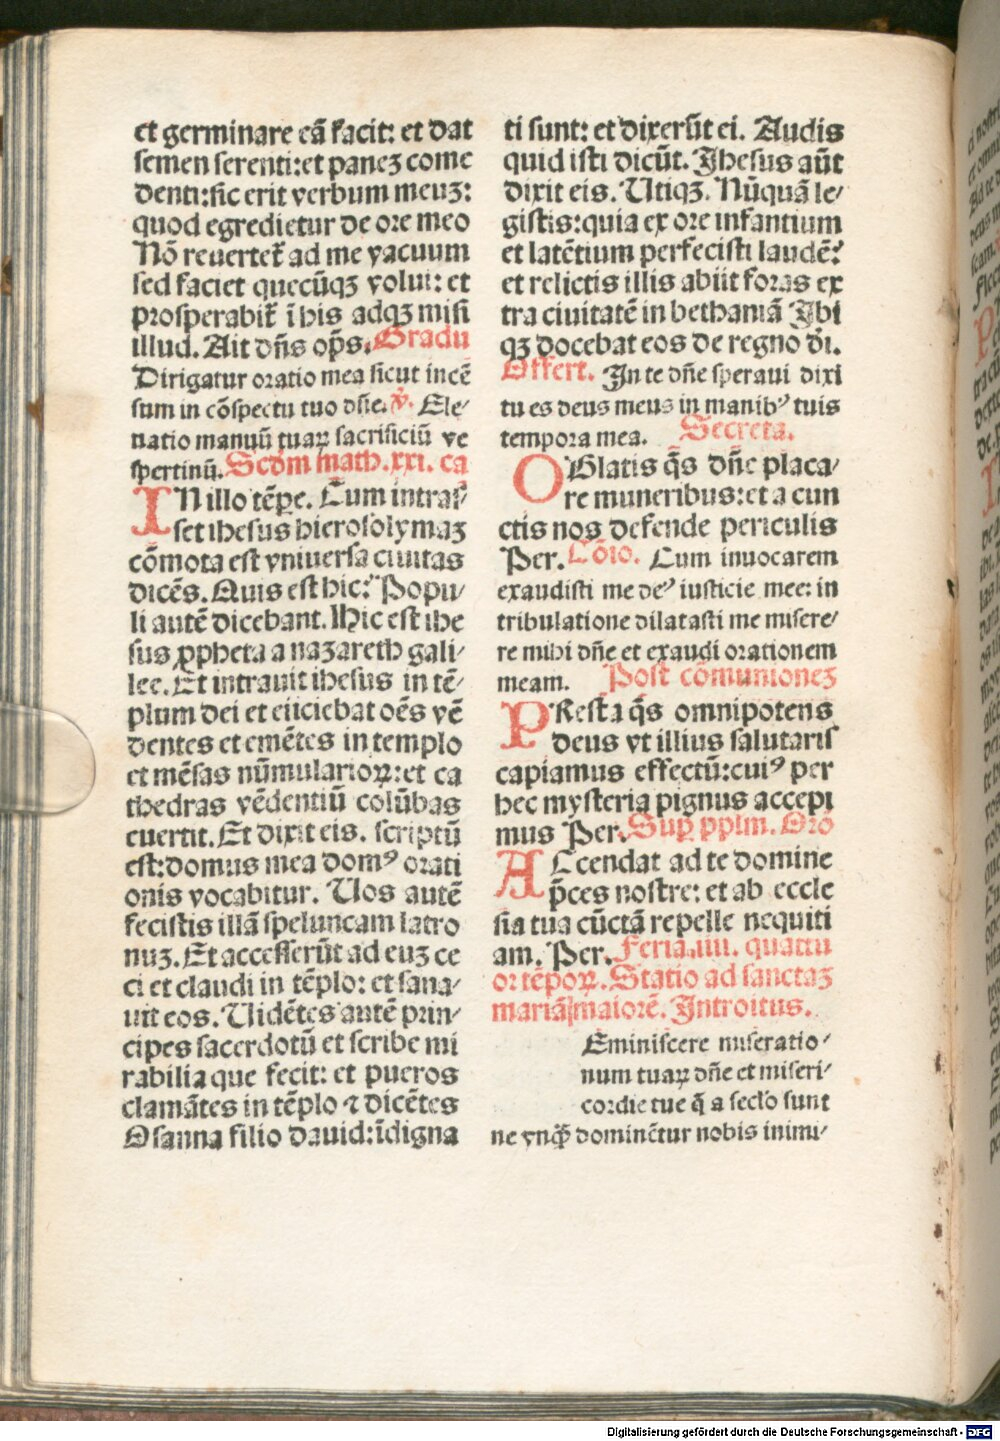 et germinare eã facit: et dat
semen serenti: et panez come
denti: sic erit verbum meuz:
quod egredietur de ore meo
Nõ reuertet̃ ad me vacuum
sed faciet quecũqꝫ volui: et
prosperabit̃ ĩ his adqꝫ misi
illud. Ait dñs op̃s. Gradu
Dirigatur oratio mea sicut incẽ
sum in cõspectu tuo dñe. ℣. Ele-
uatio manuũ tuaꝝ sacrificiũ ve
spertinũ. Scdm math. xxi. ca
IN illo tẽpe. Cum intras/
set ihesus hierosolymaz
cõmota est vniuersa ciuitas
dicẽs. Quis est hic? Popu/
li autẽ dicebant. Hic est ihe
sus ꝓpheta a nazareth gali/
lee. Et intrauit ihesus in tẽ/
plum dei et eiiciebat oẽs vẽ
dentes et emẽtes in templo
et mẽsas nũmularioꝝ: et ca
thedras vẽdentiũ colũbas
euertit. Et dixit eis. scriptũ
est: domus mea domꝰ orati
onis vocabitur. Uos autẽ
fecistis illã speluncam latro
nuz. Et accesserũt ad euz ce
ci et claudi in tẽplo: et sana/
uit eos. Uidẽtes autẽ prin/
cipes sacerdotũ et scribe mi
rabilia que fecit: et pueros
clamãtes in tẽplo ⁊ dicẽtes
Osanna filio dauid: ĩdigna
ti sunt: et dixerũt ei. Audis
quid isti dicũt. Ihesus aũt
dixit eis. Utiqꝫ. Nũquã le/
gistis: quia ex ore infantium
et latẽtium perfecisti laudẽ?
et relictis illis abiit foras ex
tra ciuitatẽ in bethaniã Ibi
qꝫ docebat eos de regno di̇̃.
Offert. In te dñe speraui dixi
tu es deus meus in manibꝰ tuis
tempora mea. Secreta.
OBlatis q̃s dñe placa/
re muneribus: et a cun
ctis nos defende periculis
Per. Cõio. Cum inuocarem
exaudisti me deꝰ iusticie mee: in
tribulatione dilatasti me misere/
re mihi dñe et exaudi orationem
meam. Post cõmunionez
PResta q̃s omnipotens
deus vt illius salutaris
capiamus effectũ: cuiꝰ per
hec mysteria pignus accepi
mus Per. Suꝑ pplm. Oro
AScendat ad te domine
p̃ces nostre: et ab eccle
sia tua cũctã repelle nequiti
am. Per. Feria. iiii. quattu
or tẽpoꝝ. Statio ad sanctaz
mariã maiorẽ. Introitus.
Eminiscere miseratio/
num tuaꝝ dñe et miseri/
cordie tue q̃ a seclo sunt
ne vnq̃ dominẽtur nobis inimi/
Digitalisierung gefördert durch die Deutsche Forschungsgemeinschaft - DFG